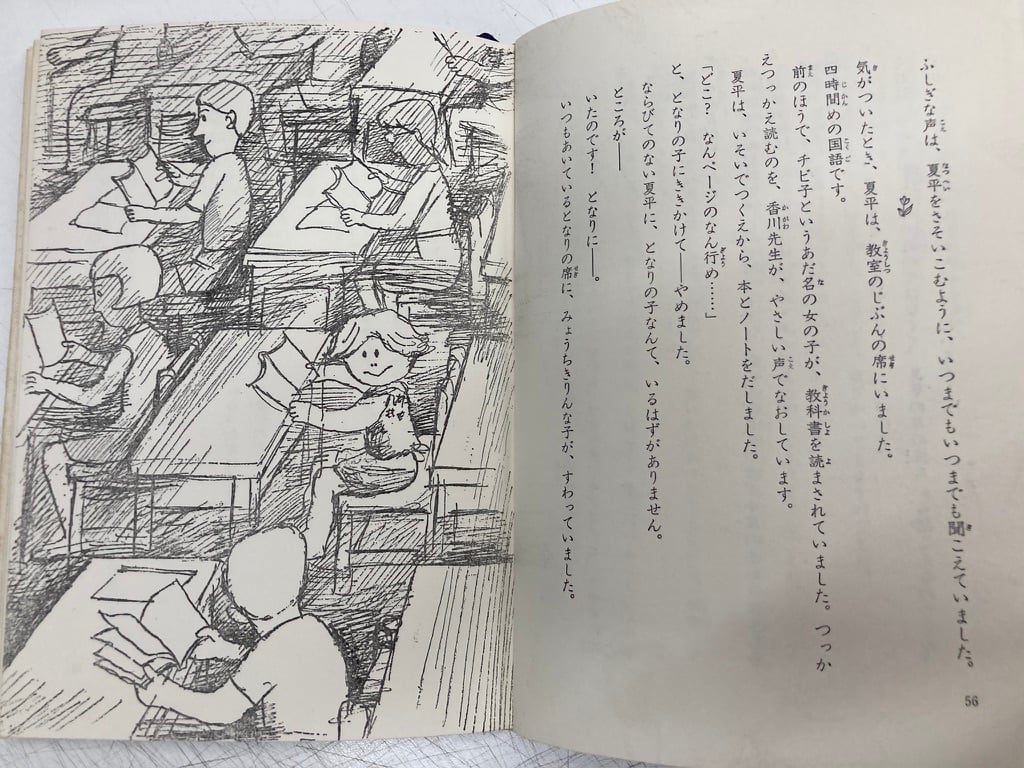 ふしぎな声は、夏平をさそいこむように、いつまでもいつまでも聞こえていました。
気がついたとき、夏平は、教室のじぶんの席にいました。
四時間めの国語です。
前のほうで、チビ子というあだ名の女の子が、教科書を読まされていました。つっか
えつっかえ読むのを、香川先生が、やさしい声でなおしています。
夏平は、いそいでつくえから、本とノートをだしました。
「どこ？　なんページのなん行め……」
と、となりの子にききかけて――やめました。
ならびてのない夏平に、となりの子なんて、いるはずがありません。
ところが――
いたのです！　となりに――。
いつもあいているとなりの席に、みょうちきりんな子が、すわっていました。
56